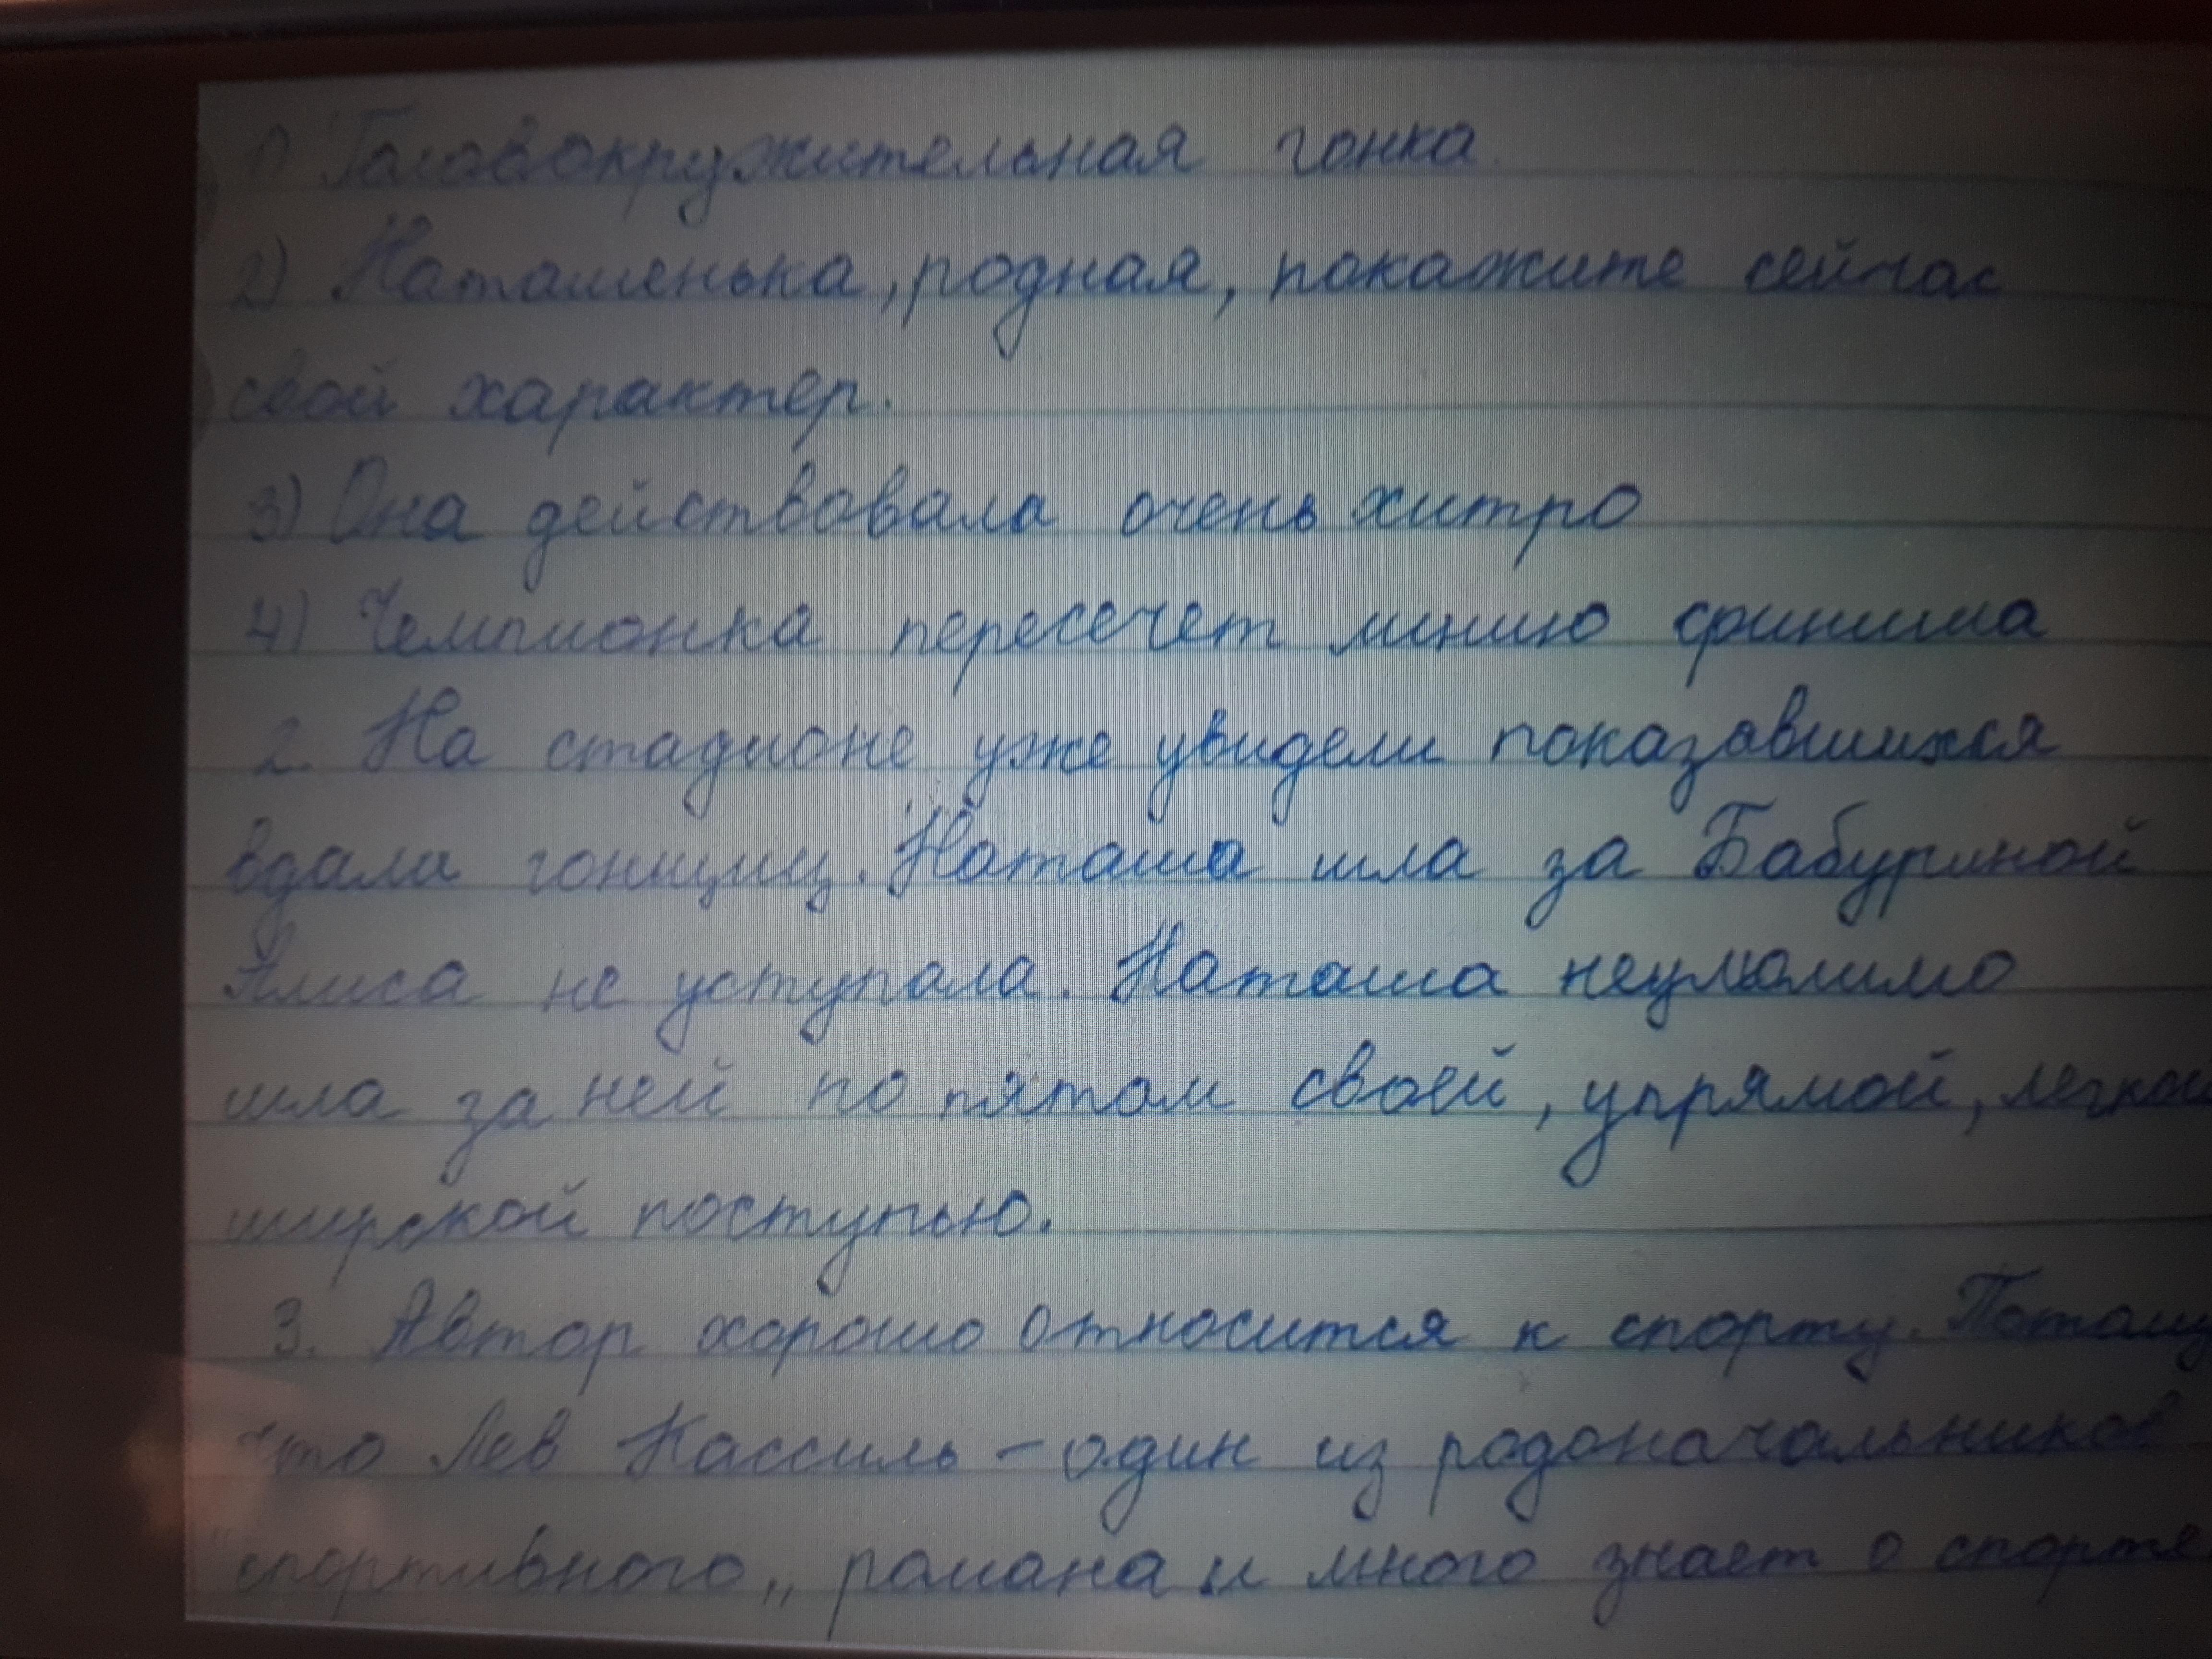 1) Головокружительная гонка.
2) Наташенька, родная, покажите сейчас
свой характер.
3) Она действовала очень хитро
4) Чемпионка пересечет линию финиша
2. На стадионе уже увидели показавшихся
вдали гонщиц. Наташа шла за Бабуриной
Алиса не уступала. Наташа неумолимо
шла за ней по пятам своей, упрямой, легкой
широкой поступью.
3. Автор хорошо относится к спорту. Потому
что Лев Кассиль – один из родоначальников
"спортивного„ романа и много знает о спорте.